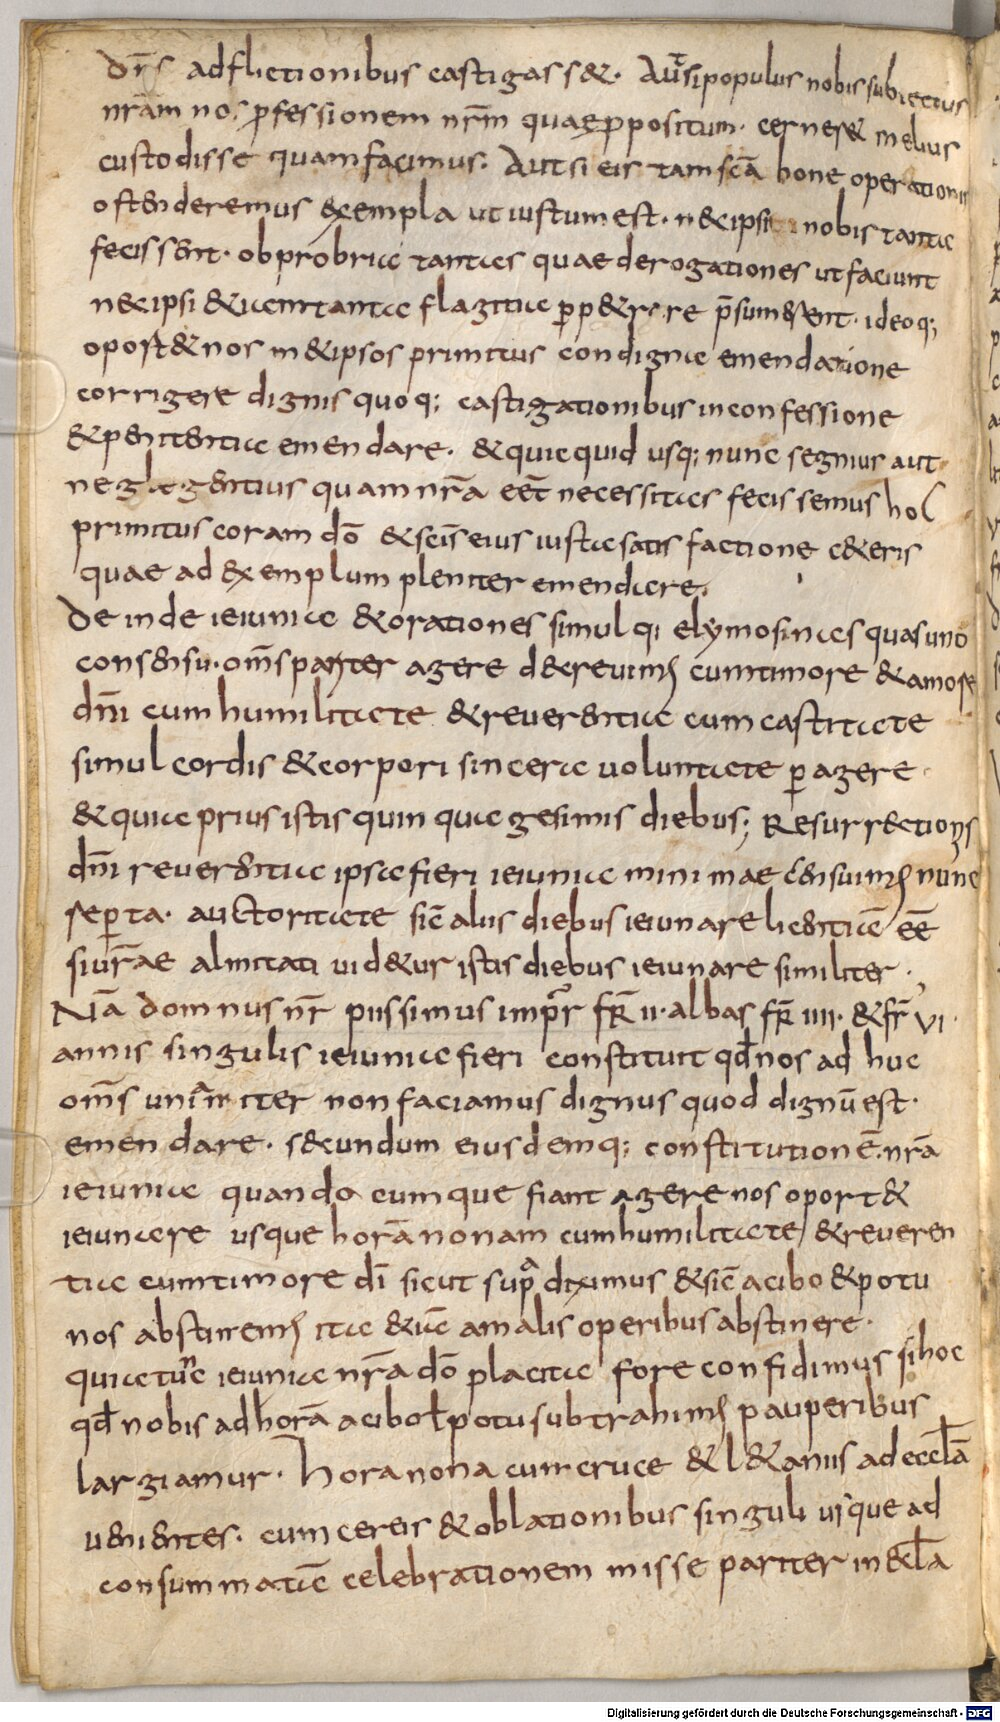 dn̄s adflictionibus castigass&. Aut̄ si populus nobis subiectus
nr̄am nos p̱fessionem nr̄m quae p̱positum. cernes& melius
custodisse quam facimus. Aut si eis tam sc̄a bone operationis
ostenderemus exempla ut iustum est. n& ipsi nobis tanta
fecissent. obprobria tantas quae derogationes ut faciunt
n& ipsi & iam tanta flagitia p̱p&rare p̄sumsissent. ideoq;
oport& nos in& ipsos primitus condigna emendatione
corrigere dignis quoq; castigationibus in confessione
& penitentia emendare. & quicquid usq; nunc segnius aut
neglegentius quam nr̄a eēt necessitas fecissemus hoc
primitus coram dō & sc̄is eius iusta satisfactione c&eris
quae ad exemplum pleniter emendare.
Deinde ieiunia & orationes simul q; elymosinas quas uno
consensu. om̄s pariter agere decreuim; cum timore & amore
dn̄i cum humilitate & reuerentia cum castitate
simul cordis & corpori sincera uoluntate p̱agere
& quia prius istis quinquagesimis diebus; Resurrectionis
dn̄i reuerentia ipsa fieri ieiunia minimae censuim; nunc
sep̱ta. auctoritate sic̄ aliis diebus ieiunare licentiā eē
siur̄ae alicitati uid&ur istis diebus ieiunare similiter,
Nā domnus nr̄ piissimus imp̄r fr̄ II. albas fr̄ IIII. & fr̄ VI.
annis singulis ieiunia fieri constituit qd̄ nos ad huc
om̄s unianimiter non faciamus dignus quod dignū est.
emendare. secundum eiusdemq; constitutionē. nr̄a
ieiunia quando cumque fiant agere nos oport&
ieiunare usque horā nonam cum humilitate / & reueren
tia cum timore dī sicut supa diximus & sic̄ a cibo & potu
nos abstinem; ita & iā a malis operibus abstinere.
quia tunc ieiunia nr̄a dō placita fore confidimus si hoc
qd̄ nobis ad horā a cibo ł potu subtrahim; pauperibus
largiamur. Hora nona cum cruce & l&aniis ad eccłā
uenientes. cum cereis & oblationibus singuli usque ad
consummatā celebrationem misse pariter in &cłā
Digitalisierung gefördert durch die Deutsche Forschungsgemeinschaft - DFG